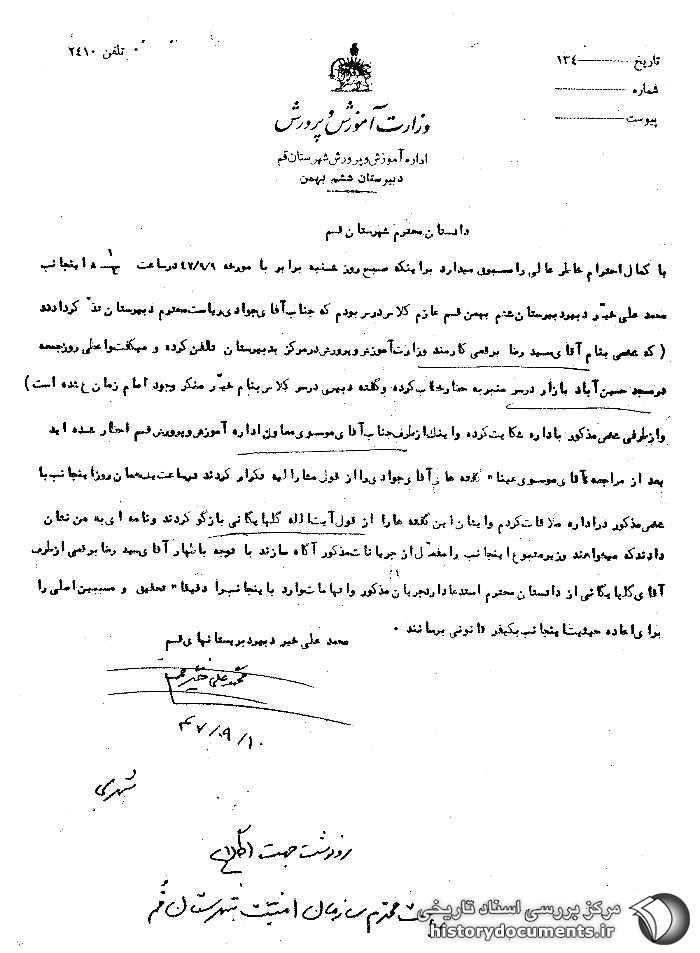 تاریخ ــــــــ ۱۳۴
تلفن ۲۴۱۰
شماره
پیوست
وزارت آموزش و پرورش
اداره آموزش و پرورش شهرستان قم
دبیرستان ششم بهمن
دادستان محترم شهرستان قم
با کمال احترام خاطر عالی را مسبوق میدارد بر اینکه صبح روز شنبه برابر با مورخه ۴۷/۹/۹ در ساعت ۸ اینجانب
محمد علی خیّر دبیر دبیرستان ششم بهمن قم عازم کلاس درس بودم که جناب آقای جوادی ریاست محترم دبیرستان تذکر دادند
( که شخصی بنام آقای سید رضا برقعی کارمند وزارت آموزش و پرورش در مرکز بدبیرستان تلفن کرده و میگفت واعظی روز جمعه
در مسجد حسین آباد بازار در سر منبر به حضار خطاب کرده و گفته دبیری در سر کلاس بنام خیّر منکر وجود امام زمان ع شده است )
و از طرفی شخص مذکور باداره شکایت کرده و اینک از طرف جناب آقای موسوی معاون اداره آموزش و پرورش قم احضار شده اید
بعد از مراجعه آقای موسوی عیناً گفته های آقای جوادی را از قول مشارالیه تکرار کردند در ساعت همان روز اینجانب با
شخص مذکور در اداره ملاقات کردم و ایشان این گفته ها را از قول آیت الله گلپایگانی بازگو کردند و نامه ای به من نشان
دادند که میخواهند وزیر متبوع اینجانب را مفصّل از جریانات مذکور آگاه سازند با توجه باظهار آقای سید رضا برقعی از طرف
آقای گلپایگانی از دادستان محترم استدعا دارد جریان مذکور و اتهامات وارد باینجانب را دقیقاً تحقیق و مسببین اصلی را
برای اعاده حیثیت اینجانب بکیفر قانونی برسانند ۰
محمد علی خیر دبیر دبیرستانهای قم
محمد علی خیر
۴۷/۹/۱۰
رونوشت جهت اطلاع
محترم سازمان امنیت شهرستان قم
مرکز بررسی اسناد تاریخی
historydocuments.ir